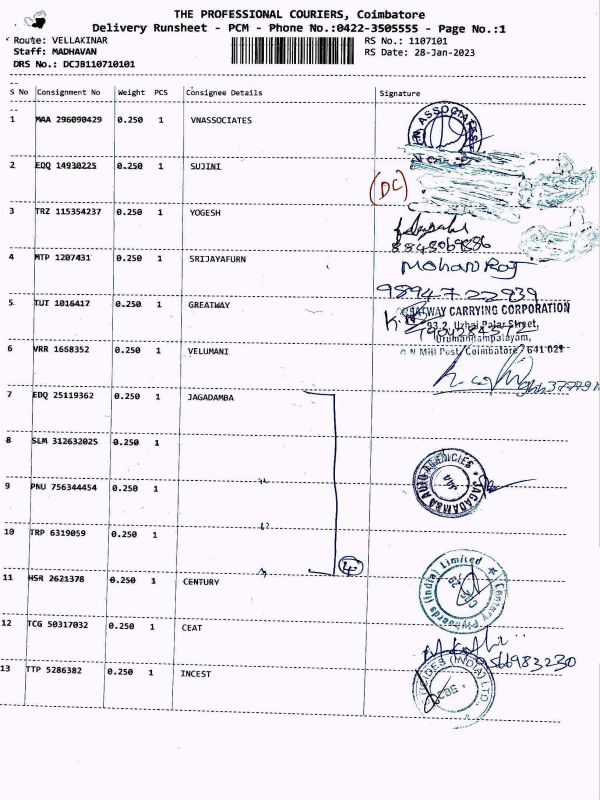 THE PROFESSIONAL COURIERS, Coimbatore
Delivery Runsheet - PCM - Phone No.:0422-3505555 - Page No.:1
Route: VELLAKINAR RS No.: 1107101
Staff: MADHAVAN RS Date: 28-Jan-2023
DRS No.: DCJB110710101
S No Consignment No Weight PCS Consignee Details Signature
1 MAA 296090429 0.250 1 VNASSOCIATES
ASSOCIATES
2 EDQ 14930225 0.250 1 SUJINI
(DC)
3 TRZ 115354237 0.250 1 YOGESH
8848069886
4 MTP 1207431 0.250 1 SRIJAYAFURN
Mohan Raj
9894722839
5 TUT 1016417 0.250 1 GREATWAY
GREATWAY CARRYING CORPORATION
93.2, Uzhai Palar Street,
Urumandampalayam,
G N Mill Post, Coimbatore 641 029
6 VRR 1668352 0.250 1 VELUMANI
7 EDQ 25119362 0.250 1 JAGADAMBA
8 SLM 312632025 0.250 1
JAGADAMBA AUTO AGENCIES
9 PNU 756344454 0.250 1 "
10 TRP 6319059 0.250 1 "
" 4
11 HSR 2621378 0.250 1 CENTURY
Century Plyboards (India) Limited
12 TCG 50317032 0.250 1 CEAT
9566983230
13 TTP 5286382 0.250 1 INCEST
(INDIA) LTD.
CBE